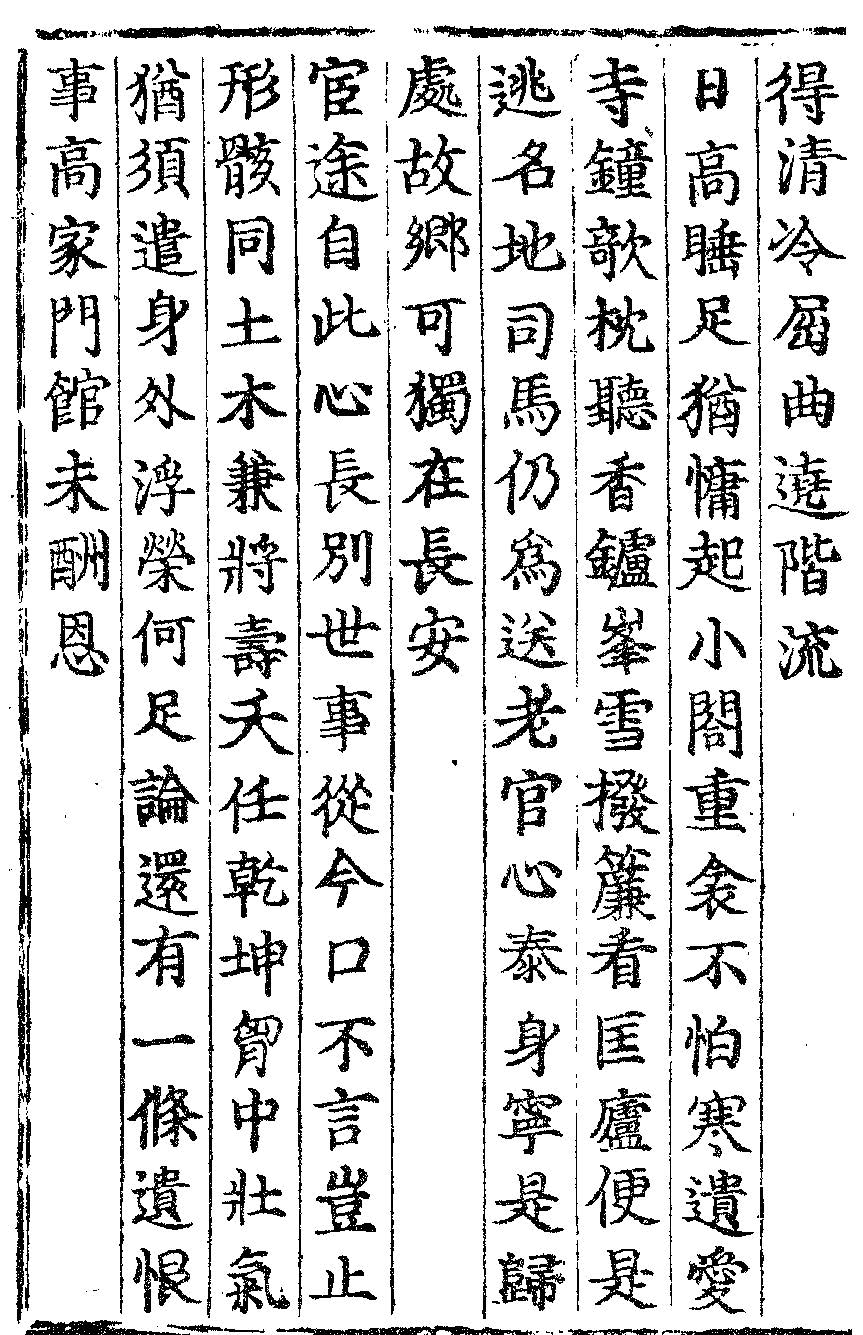 得清冷屈曲遶階流
日高睡足猶慵起小閤重衾不怕寒遺愛
寺鐘欹枕聽香鑪峯雪撥簾看匡廬便是
逃名地司馬仍爲送老官心泰身寧是歸
處故鄉可獨在長安
宦途自此心長別世事從今口不言豈止
形骸同土木兼將壽夭任乾坤胷中壯氣
猶須遣身外浮榮何足論還有一條遺恨
事高家門館未酬恩